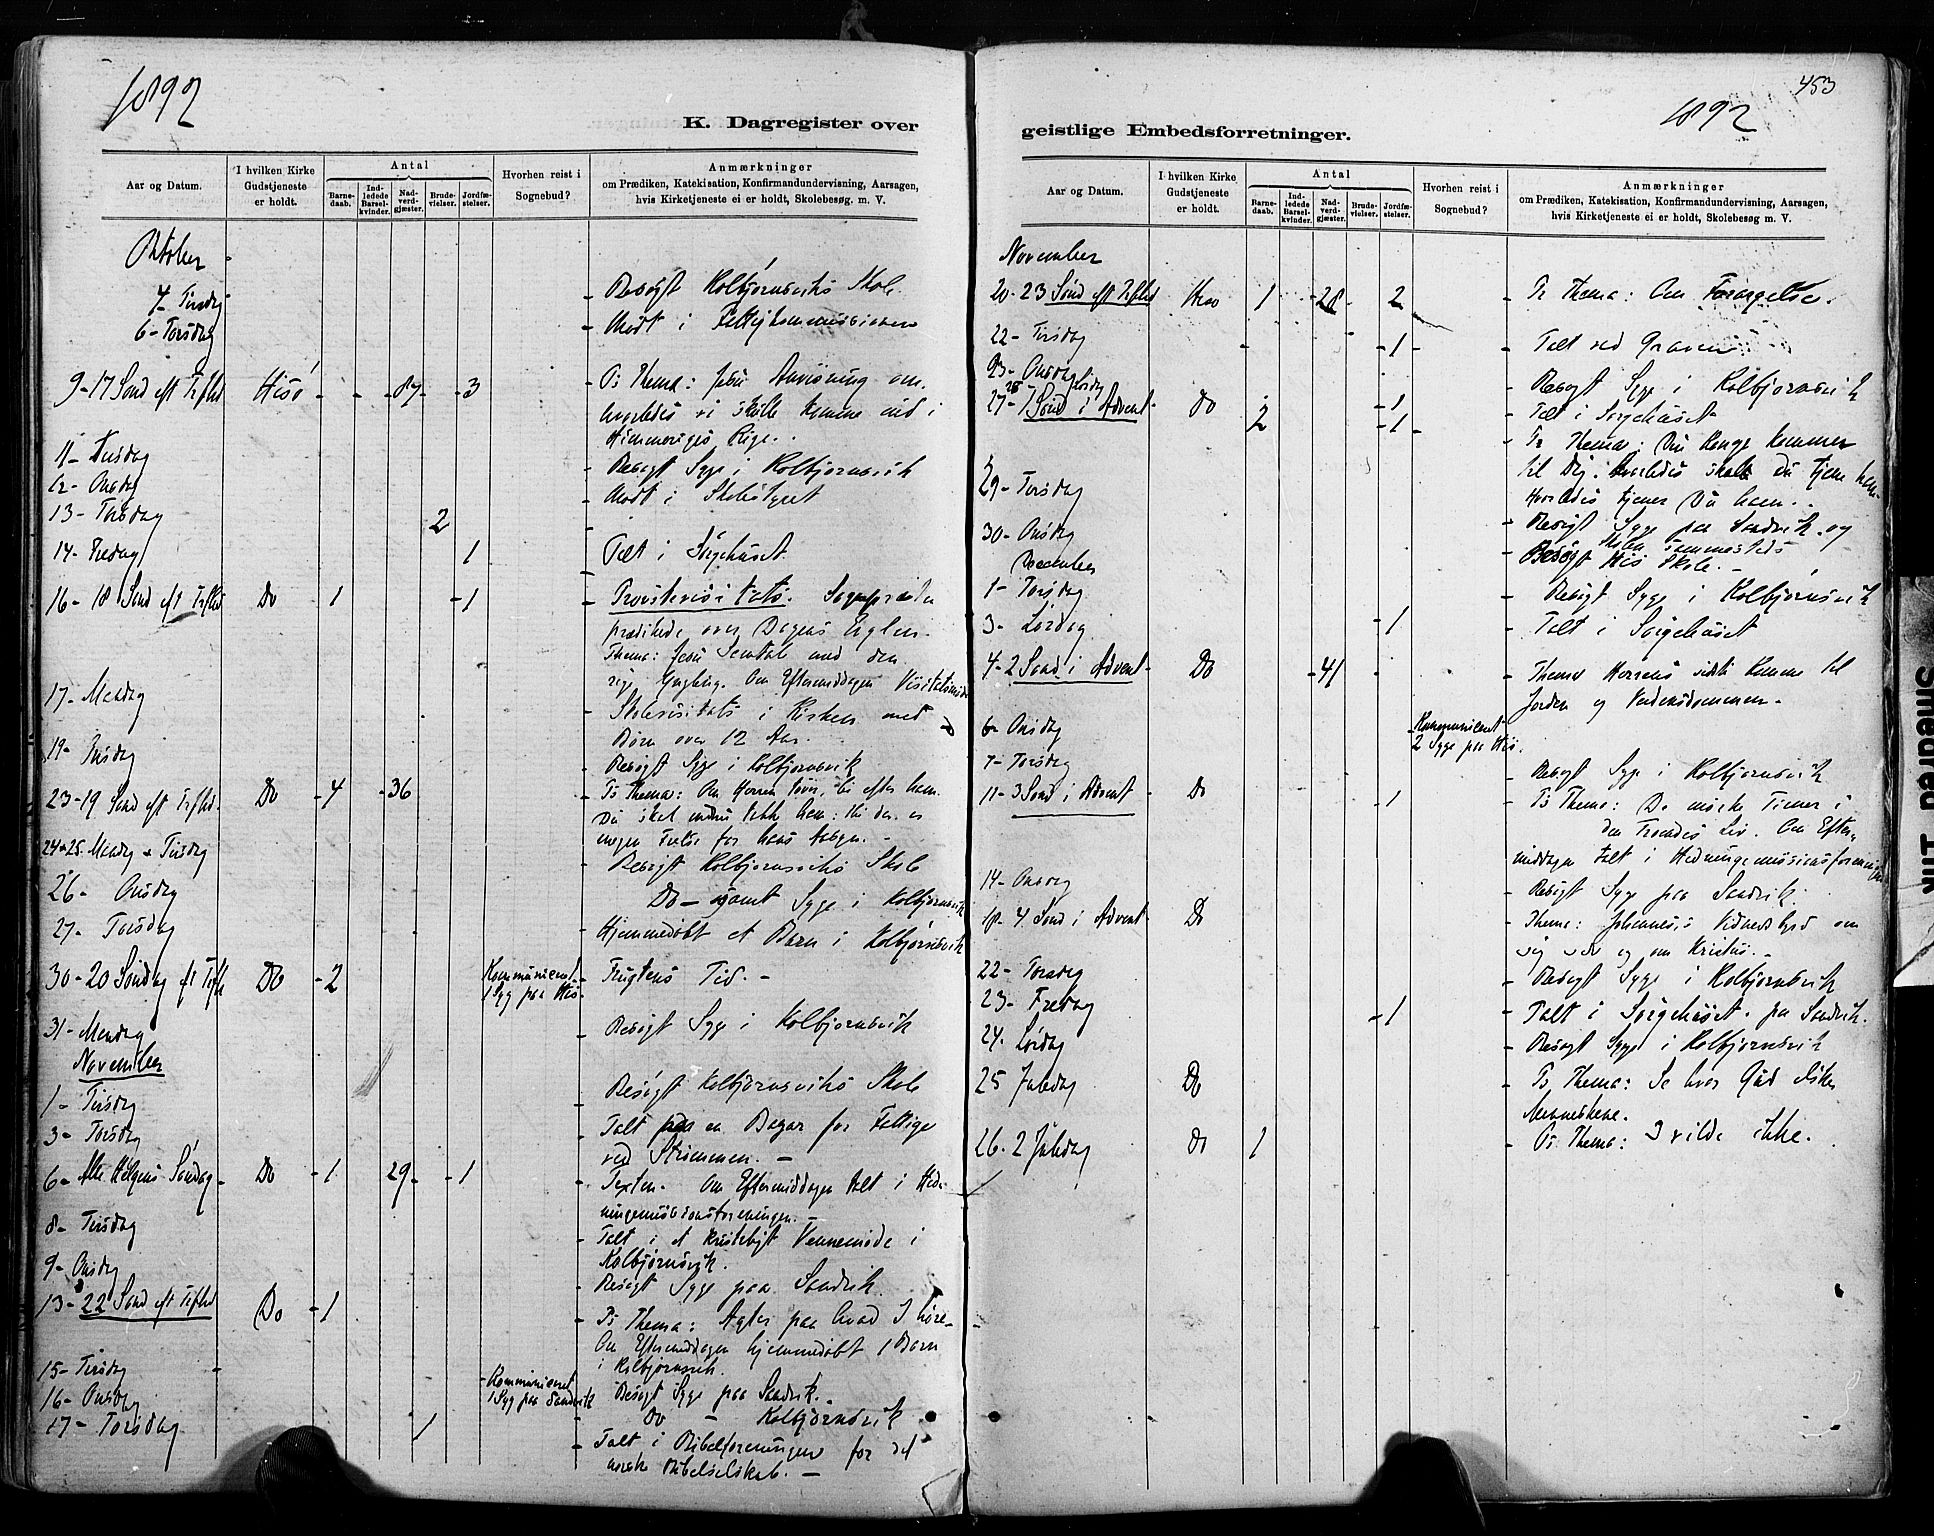 1892
K. Dagregister over
Aar og Datum.
I hvilken Kirke Gudstjeneste er holdt.
Antal
Barnedaab.
Indledede Barselkvinder.
Nadverdgjæster.
Brudevielser.
Jordfæstelser.
Hvorhen reist i Sognebud?
Anmærkninger
om Prædiken, Katekisation, Konfirmandundervisning, Aarsagen,
hvis Kirketjeneste ei er holdt, Skolebesøg. m. V.
Oktober
4- Tirsdag - Besøgt Kolbjørnsviks Skole
6- Torsdag - Mødt i
9- 17 Sønd eft Trefhed Hisø - - 87 - 3 - Pr Thema: Jesu Anvisning om
hvorledes vi skulle komme ind i
Himmeriges Rige.
11- Tirsdag - Besøgt Syge i Kolbjørnsvik
12- Onsdag - Mødt i Skolestyret
13- Torsdag 2
14- Fredag 1 - Talt i Sørgehuset
16- 18 Sønd eft Trefhed Do - 1 - 1 - Provstevisitats.
prædikede over Dagens
Thema: Jesu Samtale med den
rige Yngling. Om Eftermiddagen
17- Mandag Skolevisitats i Kirken med
Børn over 12 Aar.
19- Onsdag - Besøgt Syge i Kolbjørnsvik
23- 19 Sønd eft Trefhed - Do - 4 - 36 - Pr Thema: Om Herren tøver, bi efter ham.
Du skal
for hans
24 & 25. Mandag & Tirsdag - Besøgt Kolbjørnsviks Skole
26- Onsdag Do - samt Syge i Kolbjørnsvik
27- Torsdag - Hjemmedøbt et Barn i Kolbjørnsvik
30- 20 Søndag eft Trefh Do - 2 Kommuniceret 1 Syg paa His - Frugtens Tid. -
31- Mandag - Besøgt Syge i Kolbjørnsvik
November
1- Tirsdag - Besøgt Kolbjørnsviks Skole
3- Torsdag - Talt paa en Bazar for Fattige
ved Strømmen. -
6- Alle Helgens Søndag - Do - 1 29 - - 1 - Texten. Om Eftermiddagen talt i Hed-
ningemissionsforeningen. -
8- Tirsdag - Talt i et kristeligt Vennemøde i
Kolbjørnsvik.
9- Onsdag - Besøgt Syge paa Sandvik.
13- 22 Sønd eft Trefhed Do - 1 - Pr Thema: Agter paa hvad I høre -
Om Eftermiddagen hjemmedøbt 1 Barn
i Kolbjørnsvik.
15- Tirsdag - Kommuniceret 1 Syg paa Sandvik - Besøgt Syge paa Sandvik.
16- Onsdag - Do - Kolbjørnsvik
17- Torsdag 1 - Talt i Bibelforeningen for det
norske Bibelselskab. -
453
1892
geistlige Embedsforretninger.
Aar og Datum.
I hvilken Kirke Gudstjeneste er holdt.
Antal
Barnedaab.
Indledede Barselkvinder.
Nadverdgjæster.
Brudevielser.
Jordfæstelser.
Hvorhen reist i Sognebud?
Anmærkninger
om Prædiken, Katekisation, Konfirmandundervisning, Aarsagen,
hvis Kirketjeneste ei er holdt, Skolebesøg m. V.
November
20- 23 Sønd eft Trefhed 1 - 28 - 2 - Pr Thema: Om Forargelse.
22- Tirsdag - 1 - Talt ved Graven
23- Onsdag - Besøgt Syge i Kolbjørnsvik
- 1 - Talt i Sørgehuset
27- 1 Sønd i Advent - Do 2 - 1 - Pr Thema: Din Konge kommer
til Dig; hvorledes skal Du tjene ham -
Hvorledes tjener Du ham.
29- Torsdag - Besøgt Syge paa Sandvik og
Skolen sammesteds
30- Onsdag Besøgt His Skole. -
December
1- Torsdag - Besøgt Syge i Kolbjørnsvik
3- Lørdag - 1 - Talt i Sørgehuset
4- 2 Sønd i Advent - Do - 41 - Thema Herrens sidste Komme til
Jorden og Verdensdommen.
6- Onsdag Kommuniceret 2 Syge paa His.
7- Torsdag - Besøgt Syge i Kolbjørnsvik
11- 3 Sønd i Advent - Do - 1 - Pr Thema: De mørke Timer i
den Troendes Liv. Om Efter-
middagen talt i Hedningemissionsforeningen
14- Onsdag - Besøgt Syge paa Sandvik.
18- 4 Sønd i Advent Do - Thema: Johannes's Vidnesbyrd om
sig selv og om Kristus. -
22- Torsdag - Besøgt Syge i Kolbjørnsvik
23- Fredag - 1 - Talt i Sørgehuset paa Sandvik.
24- Lørdag - Besøgt Syge i Kolbjørnsvik
25 Juledag Do - Pr Thema: Se hvor Gud elsker
Menneskene.
26- 2 Juledag Do 1 - Pr. Thema: I vilde ikke.